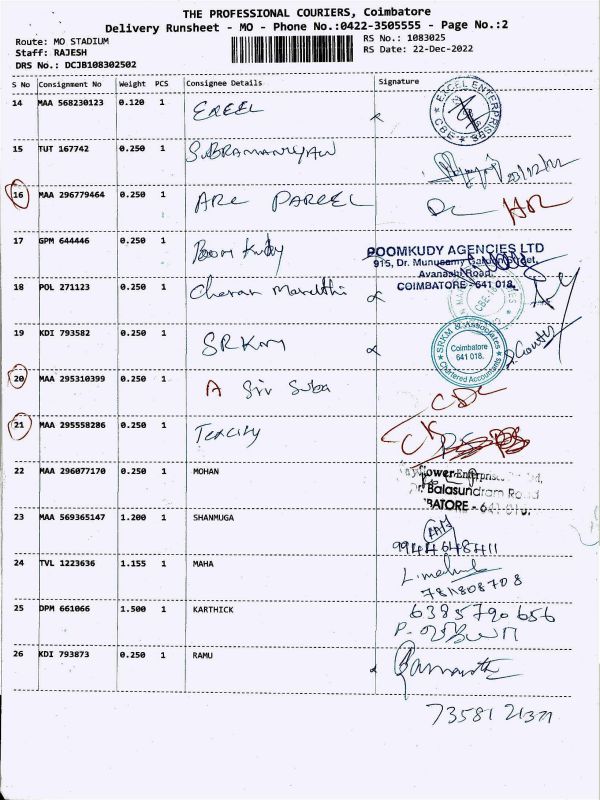 THE PROFESSIONAL COURIERS, Coimbatore
Delivery Runsheet - MO - Phone No.:0422-3505555 - Page No.:2
Route: MO STADIUM
RS No.: 1083025
Staff: RAJESH
RS Date: 22-Dec-2022
DRS No.: DCJB108302502
S No Consignment No Weight PCS Consignee Details Signature
14 MAA 568230123 0.120 1 EXCEL
EXCEL ENTERPRISES CBE
15 TUT 167742 0.250 1 SUBRAMANIYAN
20/12/22
16 MAA 296779464 0.250 1 ARC PARCEL
17 GPM 644446 0.250 1 Poom Kudy
POOMKUDY AGENCIES LTD
915, Dr. Munusamy Street,
Avanashi Road,
COIMBATORE - 641 018.
18 POL 271123 0.250 1 Cheran Maruthi
19 KDI 793582 0.250 1 SRKM
SRKM & Associates
Coimbatore
641 018.
Chartered Accountants
20 MAA 295310399 0.250 1 A Siv Suba
21 MAA 295558286 0.250 1 Texcity
22 MAA 296077170 0.250 1 MOHAN
Balasundram Road
23 MAA 569365147 1.200 1 SHANMUGA
9944648411
24 TVL 1223636 1.155 1 MAHA
25 DPM 661066 1.500 1 KARTHICK
6385790656
26 KDI 793873 0.250 1 RAMU